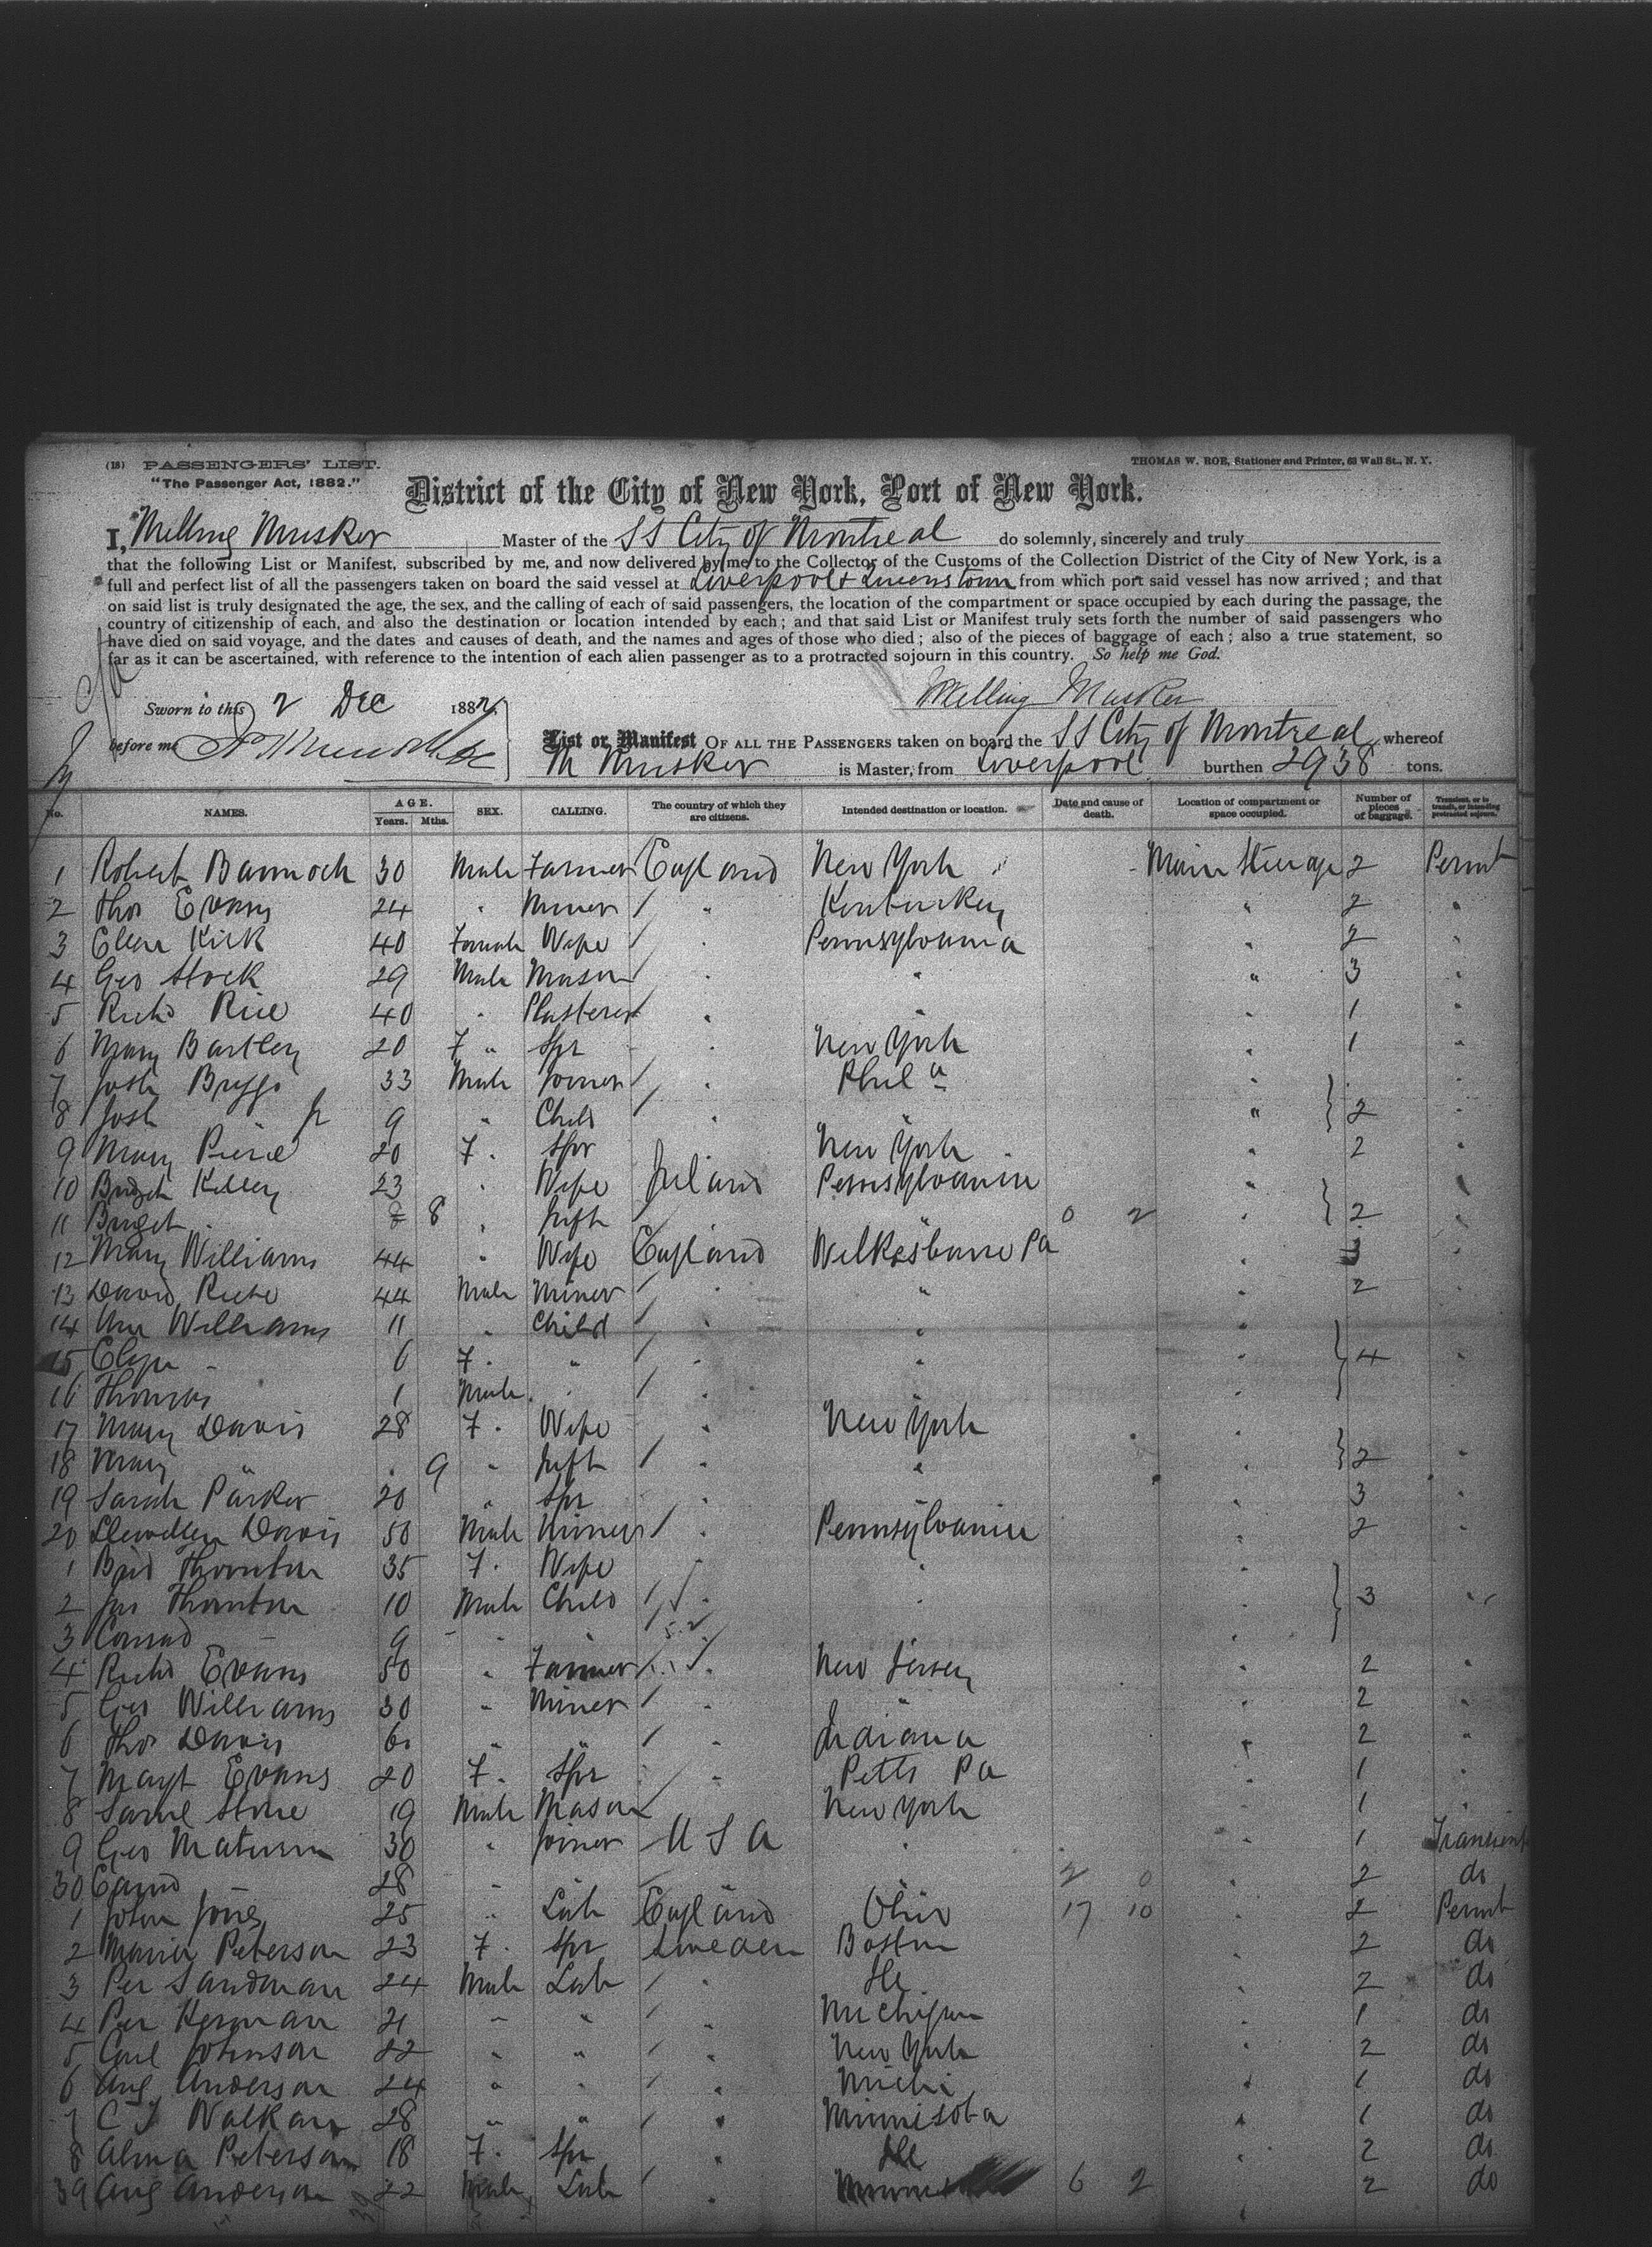 (18) PASSENGERS' LIST.
THOMAS W. ROE, Stationer and Printer, 63 Wall St., N. Y.
"The Passenger Act, 1882."
District of the City of New York, Port of New York.
I, Melling Musker Master of the SS City of Montreal do solemnly, sincerely and truly
that the following List or Manifest, subscribed by me, and now delivered by me to the Collector of the Customs of the Collection District of the City of New York, is a
full and perfect list of all the passengers taken on board the said vessel at Liverpool & Queenstown from which port said vessel has now arrived; and that
on said list is truly designated the age, the sex, and the calling of each of said passengers, the location of the compartment or space occupied by each during the passage, the
country of citizenship of each, and also the destination or location intended by each; and that said List or Manifest truly sets forth the number of said passengers who
have died on said voyage, and the dates and causes of death, and the names and ages of those who died; also of the pieces of baggage of each; also a true statement, so
far as it can be ascertained, with reference to the intention of each alien passenger as to a protracted sojourn in this country. So help me God.
Melling Musker
Sworn to this 2 Dec 1882,
before me
List or Manifest OF ALL THE PASSENGERS taken on board the SS City of Montreal whereof
M Musker is Master, from Liverpool burthen 2938 tons.
No. NAMES. AGE. Years. Mths. SEX. CALLING. The country of which they are citizens. Intended destination or location. Date and cause of death. Location of compartment or space occupied. Number of pieces of baggage. Transient, or in transit, or intending protracted sojourn.
1 Robert Bannoch 30 Male Farmer England New York Main Steerage 2 Permt
2 Thos Evans 24 " Miner / " Kentuckey " 2 "
3 Ellen Kirk 40 Female Wife / " Pennsylvania " 2 "
4 Geo Stock 29 Male Mason / " " " 3 "
5 Richd Rice 40 " Plasterer / " " " 1 "
6 Mary Bartley 20 F " Spr " New York " 1 "
7 Josh Briggs 33 Male Joiner / " Phila " "
8 Josh " Jr 9 " Child / " " " 2 "
9 Mary 20 F " Spr " New York " 2 "
10 Bridget Kelley 23 " Wife Ireland Pennsylvania "
11 Briget " 8 " Inft / 0 2 " 2 "
12 Mary Williams 44 " Wife England Wilkesbarre Pa 3 "
13 David 44 Male Miner / " " 2
14 Williams 11 " Child / " " "
15 6 F " " / " " " 4 "
16 Thomas 1 Male " / " "
17 Mary Davis 28 F " Wife " New York "
18 Mary " 9 " Inft / " " 2 "
19 Sarah Parker 20 " Spr " " 3 "
20 Llewellyn Davis 50 Male Miner / " Pennsylvania " 2 "
1 Brid Thornton 35 F " Wife / " "
2 Jas Thornton 10 Male Child / " " " 3 "
3 Conrad 9 " " / " "
4 Richd Evans 50 " Farmer / " New Jersey " 2 "
5 Geo Williams 30 " Miner / " " " 2 "
6 Thos Davis 60 " " / " Indiana " 2 "
7 Margt Evans 20 F " Spr / " Pitts Pa " 1 "
8 Saml Stone 19 Male Mason / New York " 1 "
9 Geo 30 " Joiner U S A " " 1 Transient
30 28 " / 2 0 " 2 do
1 John Jones 25 " Lab England Ohio 17 10 " 2 Permt
2 Maria Peterson 23 F " Spr Sweden Boston 2 do
3 Per Sandman 24 Male Lab / " Ill " 2 do
4 Per Herman 21 " " / " Michigan " 1 do
5 Carl Johnson 22 " " / " New York " 2 do
6 Aug Anderson 24 " " / " Michi " 1 do
7 28 " " / " Minnisota " 1 do
8 Alma Peterson 18 F " Spr " Ill " 2 do
39 Aug Anderson 22 Male Lab / " 6 2 " 2 do